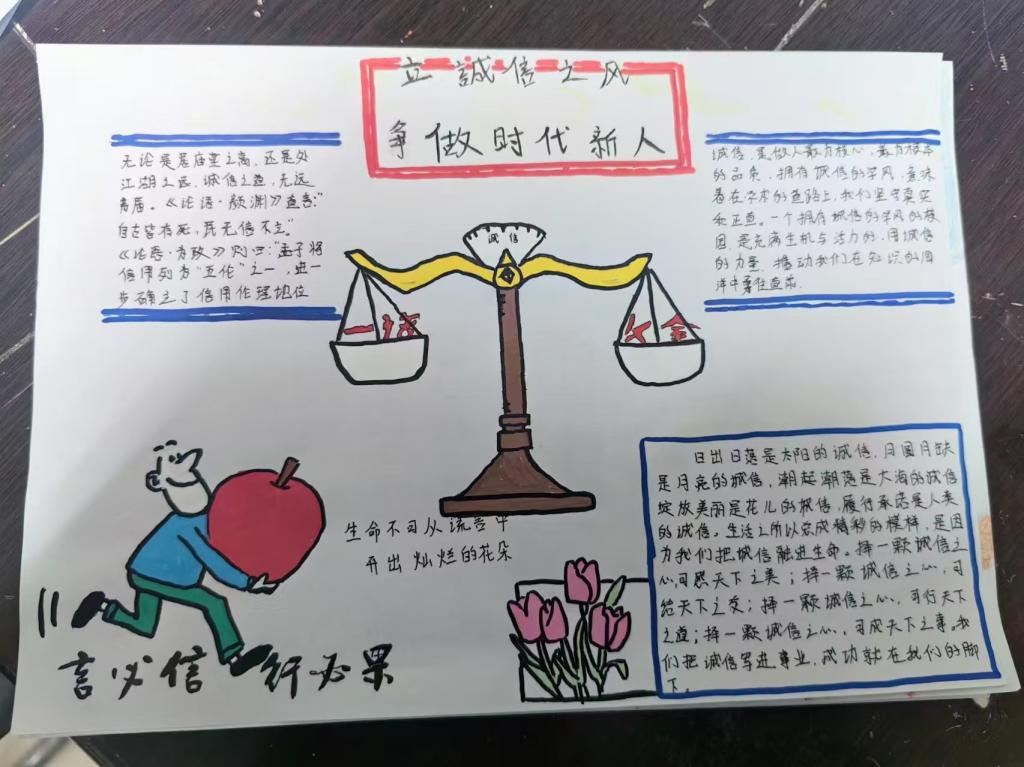 立誠信之风
争做时代新人
无论是居庙堂之高，还是处
江湖之远，诚信之道，无远
弗届。《论语·颜渊》直言："
自古皆有死，民无信不立。"
《论语·为政》则曰："孟子将
信用列为"五伦"之一，进一
步确立了信用伦理地位
诚信，是做人最为核心、最为根本
的品质，拥有诚信的学风，意味
着在学术的道路上，我们坚守真实
和正直。一个拥有诚信的学风的校
园，是充满生机与活力的，用诚信
的力量，推动我们在知识的海
洋中勇往直前.
诚信
一诺
千金
生命不可从谎言中
开出灿烂的花朵
言必信 行必果
日出日落是太阳的诚信，月圆月缺
是月亮的诚信，潮起潮落是大海的诚信
绽放美丽是花儿的诚信，履行承诺是人类
的诚信。生活之所以会成精彩的模样，是因
为我们把诚信融进生命。择一颗诚信之
心，可照天下之美；择一颗诚信之心，可
给天下之交；择一颗诚信之心，可行天下
之道；择一颗诚信之心，可成天下之事。我
们把诚信写进事业，成功就在我们的脚
下。